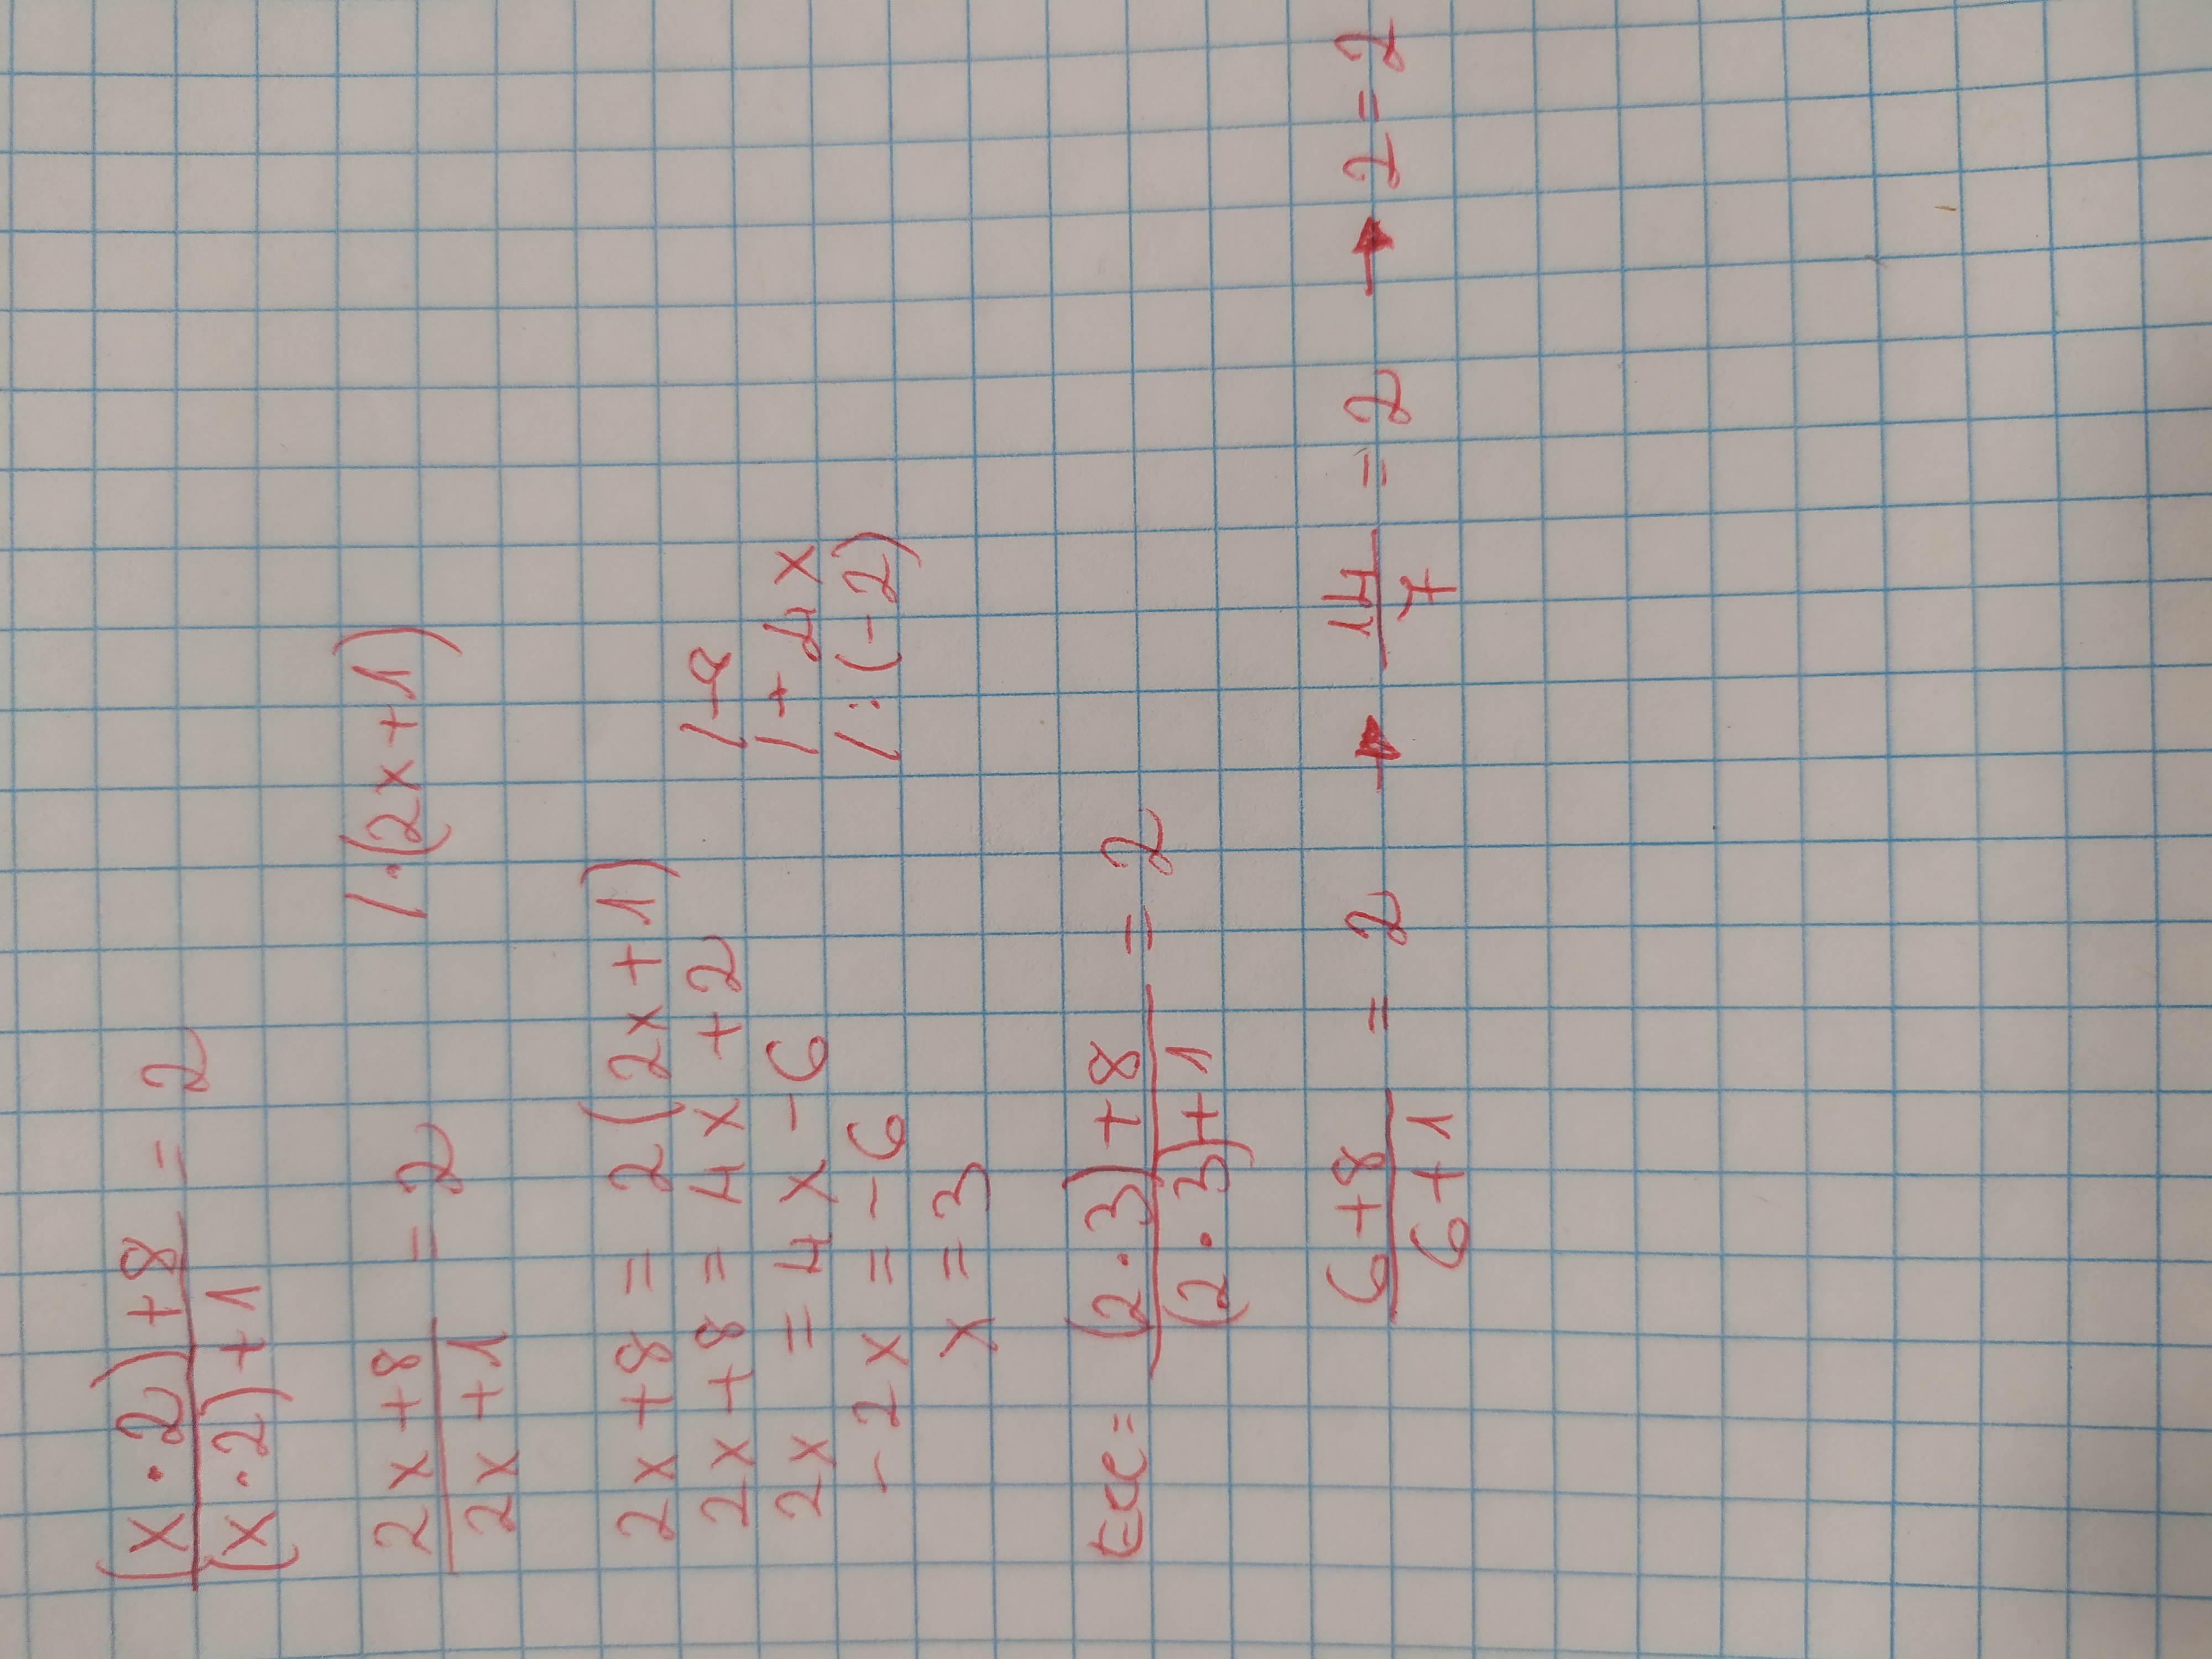 (x·2)+8 / (x·2)+1 = 2
2x+8 / 2x+1 = 2 /·(2x+1)
2x+8 = 2(2x+1)
2x+8 = 4x+2 /-8
2x = 4x-6 /+4x
-2x = -6 /:(-2)
x = 3
(2·3)+8 / (2·3)+1 = 2
6+8 / 6+1 = 2 → 14/7 = 2 → 2=2